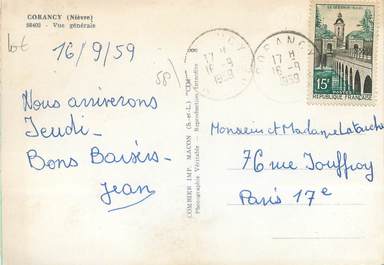 CORANCY (Nièvre)
58402 - Vue générale
16/9/59
58)
Nous arriverons
Jeudi -
Bons Baisers -
Jean
COMBIER IMP. MACON (S.-et-L.) "CIM"
Photographie Véritable - Reproduction interdite
CORANCY
17 H
16 -9
1959
CORANCY
17 H
16 -9
1959
LE QUESNOY
15F
REPUBLIQUE FRANÇAISE
Monsieur et Madame Latouche
76 rue Jouffroy
Paris 17e